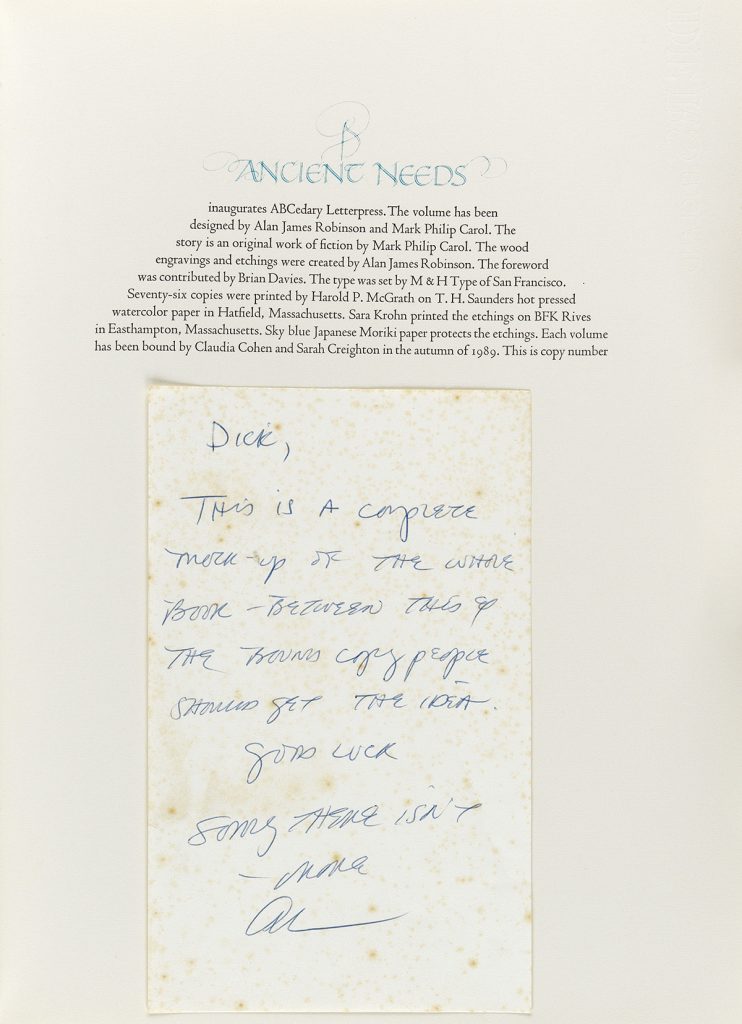 ANCIENT NEEDS
inaugurates ABCedary Letterpress. The volume has been
designed by Alan James Robinson and Mark Philip Carol. The
story is an original work of fiction by Mark Philip Carol. The wood
engravings and etchings were created by Alan James Robinson. The foreword
was contributed by Brian Davies. The type was set by M & H Type of San Francisco.
Seventy-six copies were printed by Harold P. McGrath on T. H. Saunders hot pressed
watercolor paper in Hatfield, Massachusetts. Sara Krohn printed the etchings on BFK Rives
in Easthampton, Massachusetts. Sky blue Japanese Moriki paper protects the etchings. Each volume
has been bound by Claudia Cohen and Sarah Creighton in the autumn of 1989. This is copy number
Dick,
This is a complete
mock-up of the whole
book - between this &
the bound copy people
should get the idea.
Good luck
Sorry there isn't
- more
Al